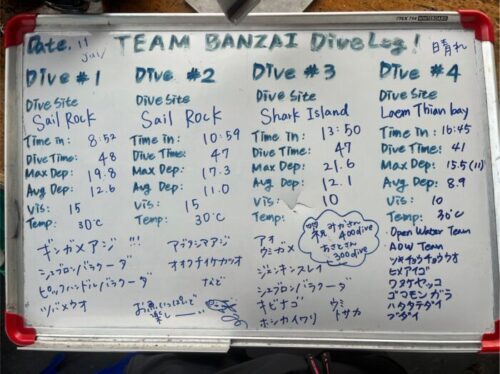 Date. 11 July
TEAM BANZAI Dive Log!
晴れ
Dive #1
Dive Site
Sail Rock
Time in: 8:52
Dive Time: 48
Max Dep: 19.8
Avg Dep: 12.6
Vis: 15
Temp: 30℃
ギンガメアジ !!!
シェブロンバラクーダ
ピックハンドルバラクーダ
ツバメウオ
Dive #2
Dive Site
Sail Rock
Time in: 10:59
Dive Time: 47
Max Dep: 17.3
Avg Dep: 11.0
Vis: 15
Temp: 30℃
アジアコショウダイ
など
お魚いっぱいで
楽しー
Dive #3
Dive Site
Shark Island
Time in: 13:50
Dive Time: 47
Max Dep: 21.6
Avg Dep: 12.1
Vis: 10
Temp:
祝 みかさん
400dive
あさとさん
300dive
アオ
ウミガメ
ジェンキンスレイ
シェブロンバラクーダ
キビナゴ
ホシカイワリ
ウミ
トサカ
Dive #4
Dive Site
Laem Thian bay
Time in: 16:45
Dive Time: 41
Max Dep: 15.5 (11)
Avg Dep: 8.9
Vis: 10
Temp: 30℃
Open Water Team
AOW Team
ツキチョウチョウウオ
ヒメアイゴ
ワヌケヤッコ
ゴマモンガラ
ハタタテダイ
ブダイ